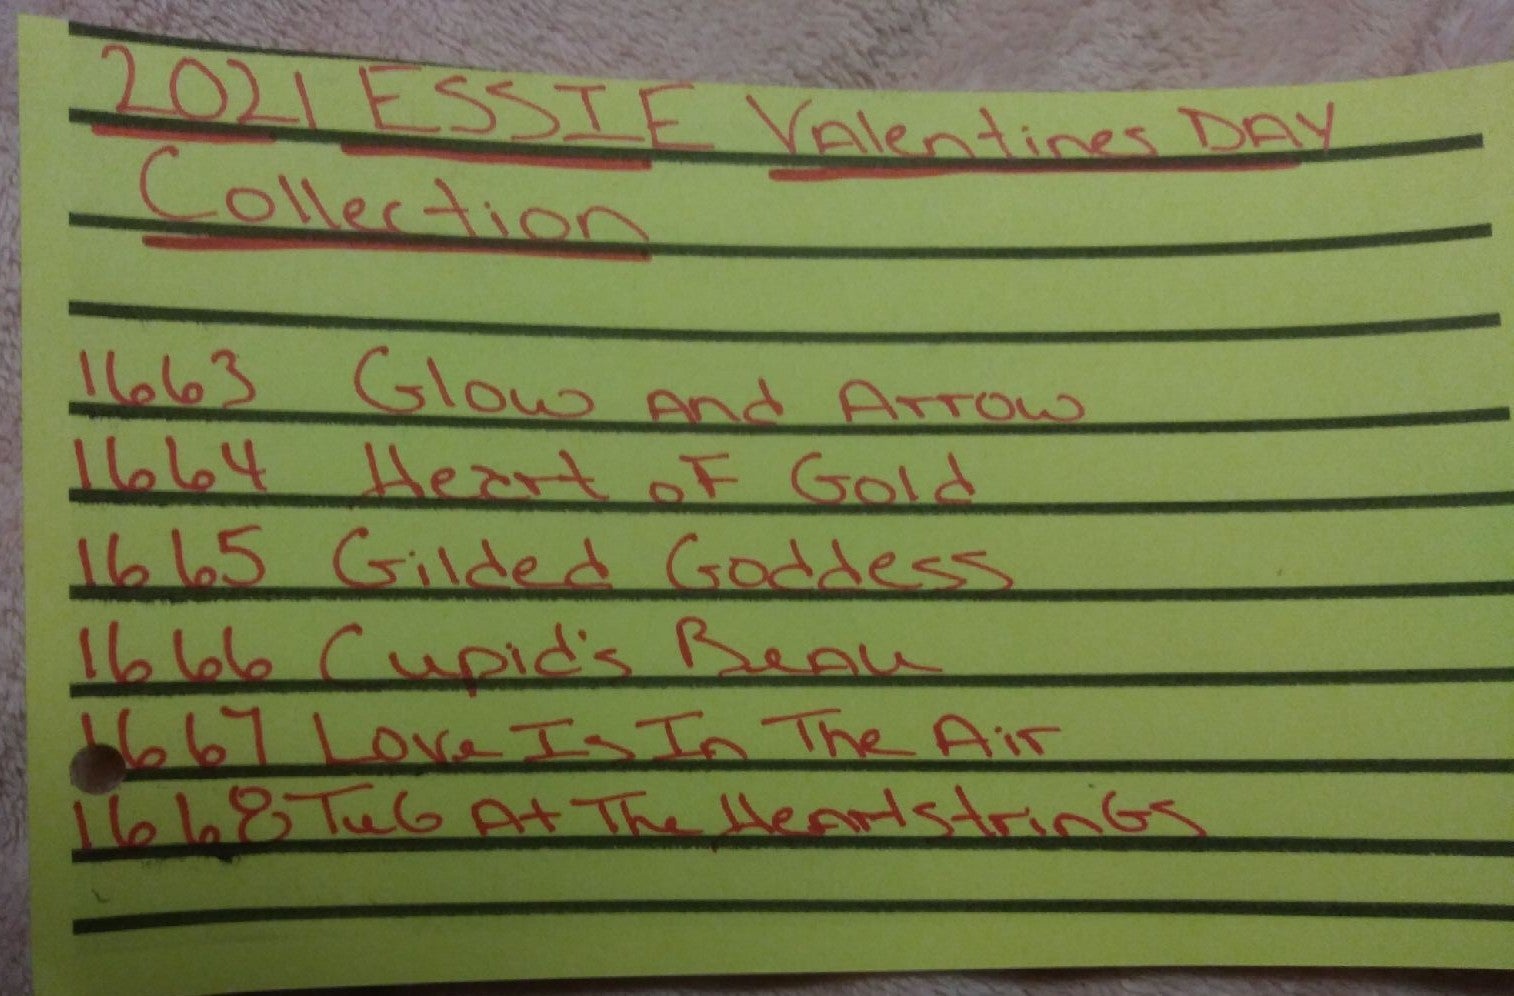 2021 ESSIE Valentines DAY
Collection
1663 Glow And Arrow
1664 Heart oF Gold
1665 Gilded Goddess
1666 Cupid's Beau
1667 Love Is In The Air
1668 TuG At The HeartstrinGs